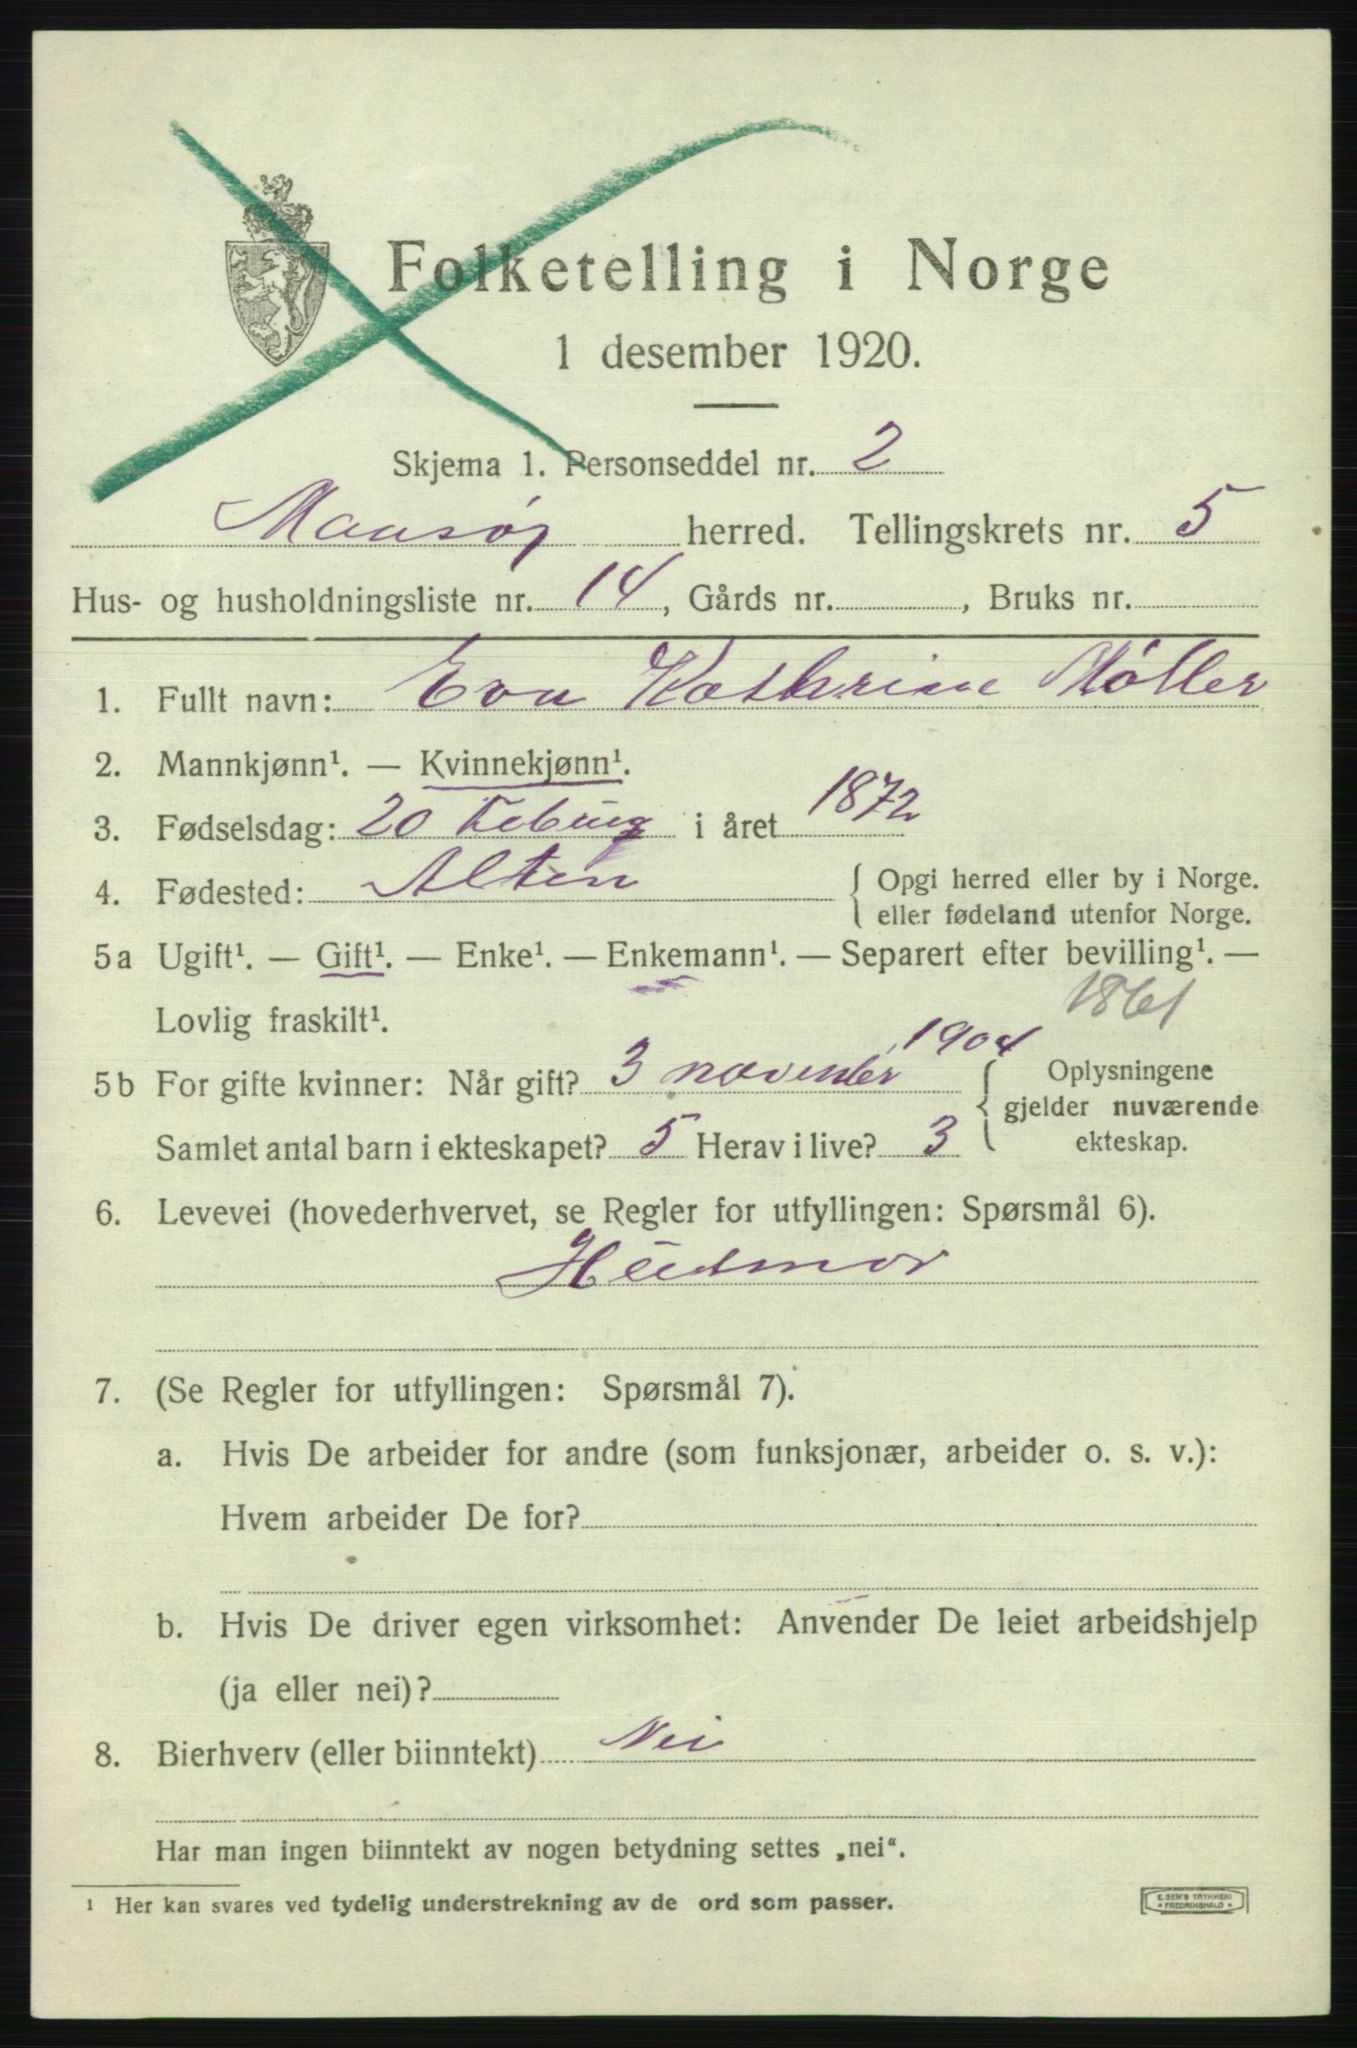 Folketelling i Norge
1 desember 1920.
Skjema 1. Personseddel nr. 2
Maasøy herred. Tellingskrets nr. 5
Hus- og husholdningsliste nr. 14, Gårds nr. , Bruks nr.
1. Fullt navn: Eva Kathrine Møller
2. Mannkjønn¹. — Kvinnekjønn¹.
3. Fødselsdag: 20 i året 1872
4. Fødested: Alten { Opgi herred eller by i Norge.
eller fødeland utenfor Norge.
5a Ugift¹. — Gift¹. — Enke¹. — Enkemann¹. — Separert efter bevilling¹. —
Lovlig fraskilt¹. 1861
5b For gifte kvinner: Når gift? 3 november 1904 { Oplysningene
gjelder nuværende
Samlet antal barn i ekteskapet? 5 Herav i live? 3 ekteskap.
6. Levevei (hovederhvervet, se Regler for utfyllingen: Spørsmål 6).
Husmor
7. (Se Regler for utfyllingen: Spørsmål 7).
a. Hvis De arbeider for andre (som funksjonær, arbeider o. s. v.):
Hvem arbeider De for?
b. Hvis De driver egen virksomhet: Anvender De leiet arbeidshjelp
(ja eller nei)?
8. Bierhverv (eller biinntekt) Nei
Har man ingen biinntekt av nogen betydning settes „nei“.
¹ Her kan svares ved tydelig understrekning av de ord som passer.
E. SEM'S TRYKKERI
FREDRIKSHALD